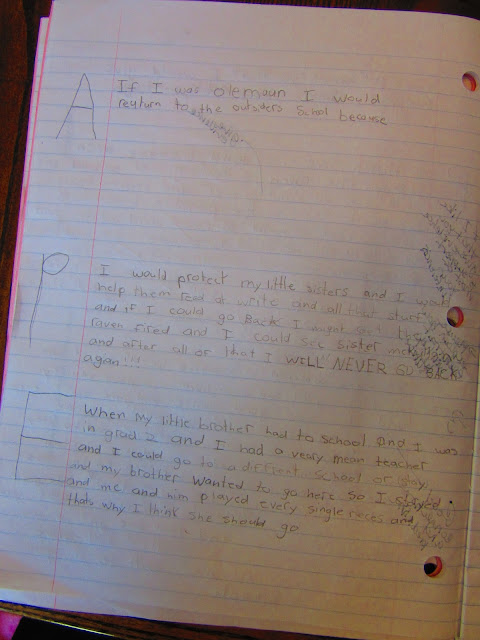 A
If I was olemaun I would
reyturn to the outsiders school because
P
I would protect my little sisters and I would
help them read & write and all that stuff
and if I could go Back I might get the
raven fired and I could see sister mac
and after all of that I WILL NEVER GO BACK
again!!!
E
When my little brother had to school and I was
in grad 2 and I had a veary mean teacher
and I could go to a diffient school or stay
and my brother wanted to go here so I stayed
and me and him played every single reces and
thats why I think she should go